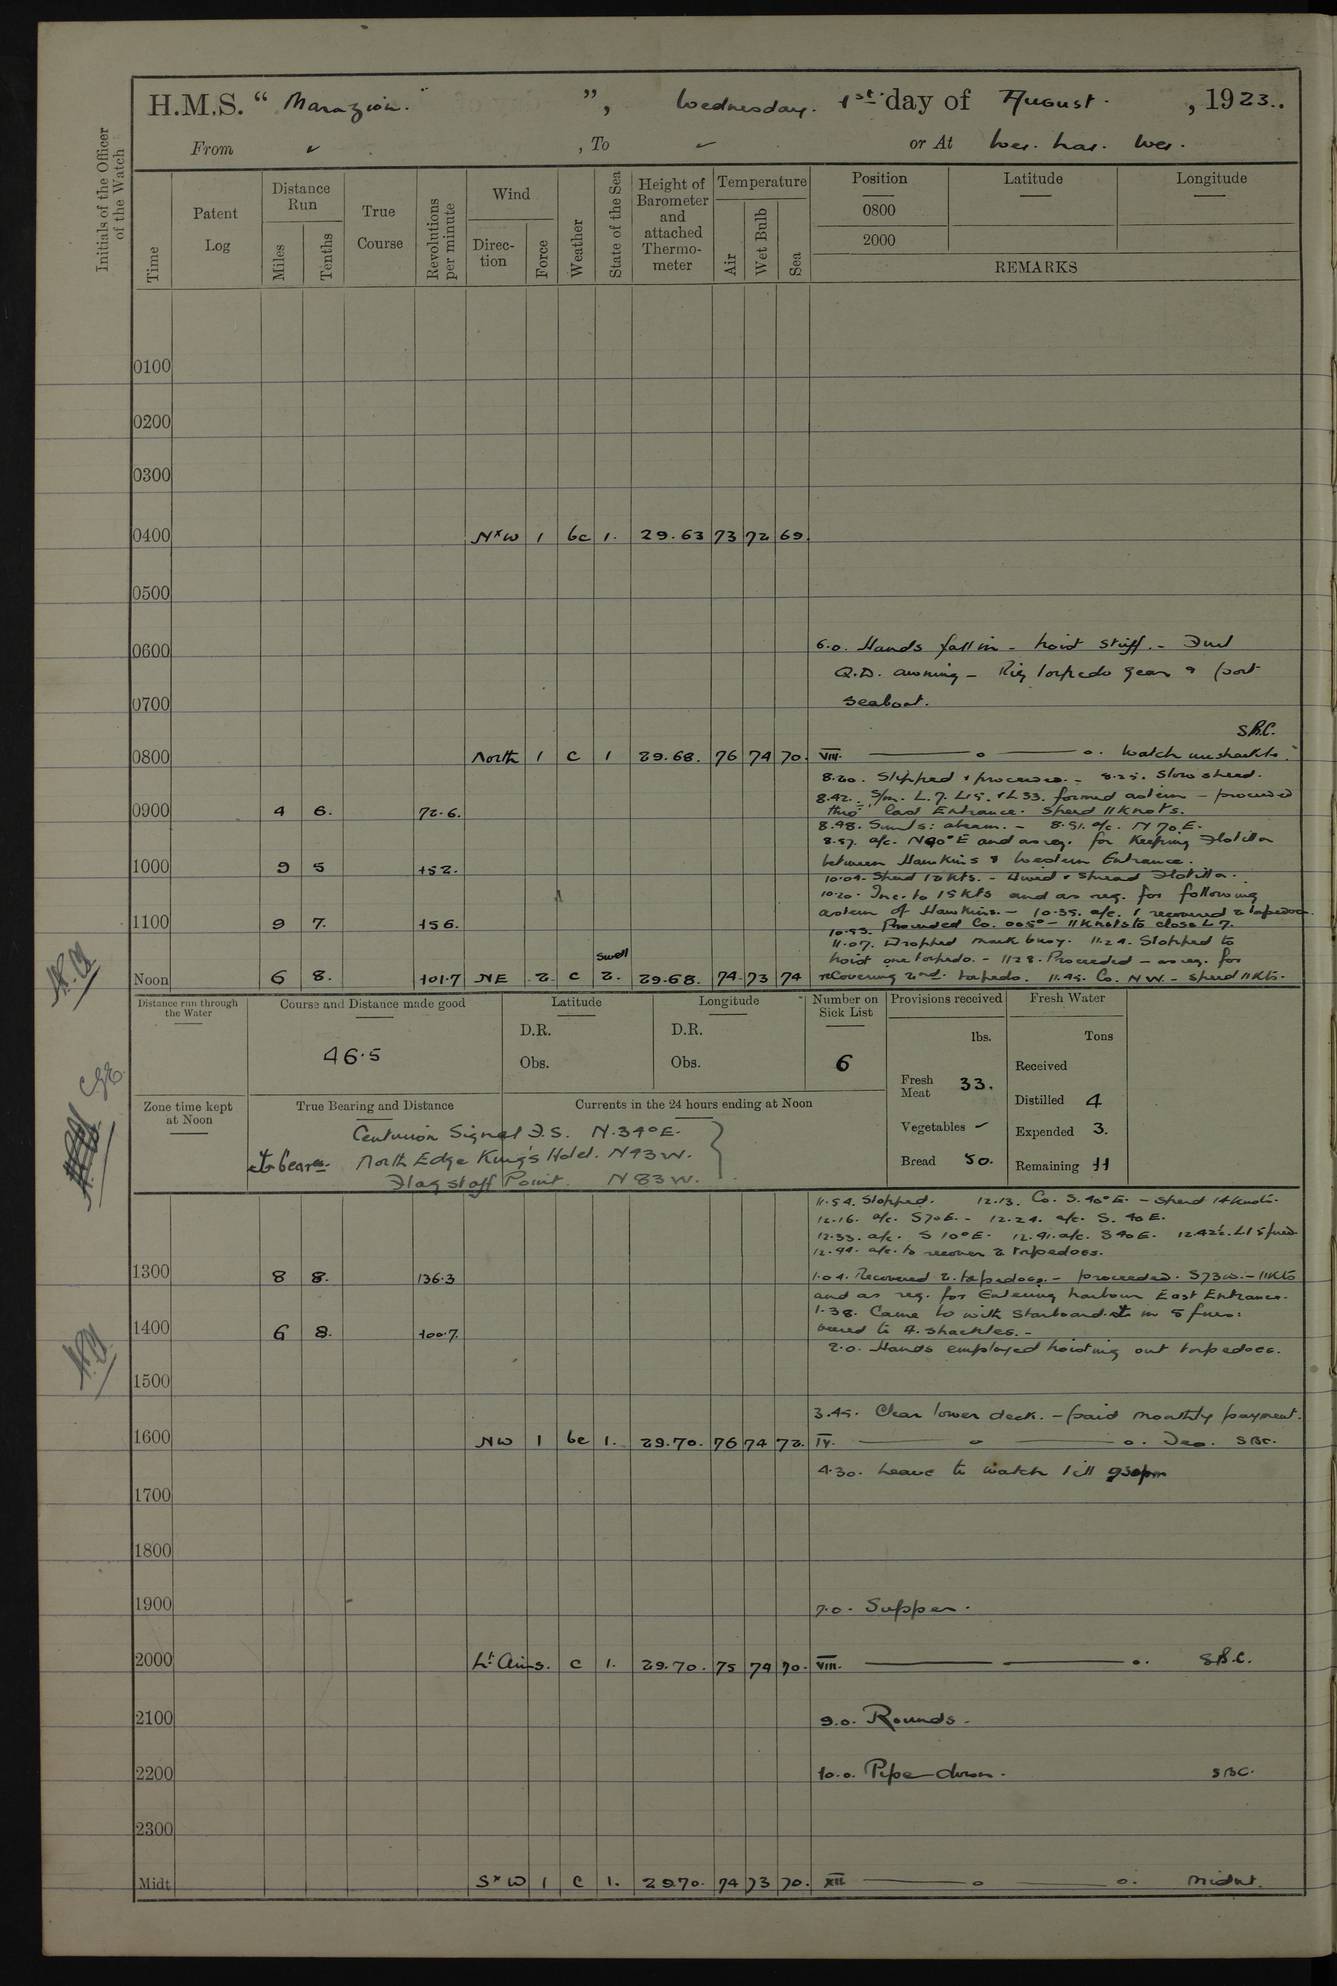 H.M.S. “ Marazion. ”, Wednesday. 1st day of August. , 1923..
From ✓ , To ✓ or At Wei. hai. Wei.
Initials of the Officer of the Watch
Time
Patent Log
Distance Run
Miles
Tenths
True Course
Revolutions per minute
Wind
Direc-tion
Force
Weather
State of the Sea
Height of Barometer and attached Thermo-meter
Temperature
Air
Wet Bulb
Sea
Position
0800
2000
Latitude
Longitude
REMARKS
0100
0200
0300
0400 N×W 1 bc 1. 29.63 73 72 69.
0500
0600 6.0. Hands fall in - hoist skiff. - Furl
Q.D. awning - Rig torpedo gear & port
0700 seaboat.
S.B.C.
0800 North 1 c 1 29.68. 76 74 70. VIII. ——— o ——— o. Watch unshackle.
8.20. Slipped & proceeded. - 8.25. Slow speed.
8.42. S/m. L.7. L15. & L33. formed astern - proceeded
0900 4 6. 72.6. thro' East Entrance. Speed 11 Knots.
8.48. abeam. - 8.51. a/c. N 70 E.
8.57. a/c. N90°E and as req. for Keeping Flotilla
between Hawkins & Western Entrance.
1000 9 5 152. 10.04. Speed 15 Kts. - Flotilla.
10.20. Inc. to 15 Kts and as req. for following
astern of Hawkins. - 10.35. a/c. & recovered 2 torpedoes.
1100 9 7. 156. 10.53. Proceeded Co. 005° - 11 Knots to close L7.
11.07. Dropped mark buoy. 11.24. Stopped to
hoist one torpedo. - 11 28. Proceeded - as req. for
Swell
Noon 6 8. 101.7 NE 2. c 2. 29.68. 74. 73 74 recovering 2nd. torpedo. 11.45. Co. NW. - speed 11 Kts.
Distance run through the Water
Course and Distance made good
46.5
Latitude
D.R.
Obs.
Longitude
D.R.
Obs.
Number on Sick List
6
Provisions received
lbs.
Fresh Meat 33.
Vegetables ✓
Bread 50.
Fresh Water
Tons
Received
Distilled 4
Expended 3.
Remaining 11
Zone time kept at Noon
True Bearing and Distance
Currents in the 24 hours ending at Noon
Centurion Signal F.S. N.34°E.
North Edge King's Hotel. N43W.
Flagstaff Point. N83W.
11.54. Stopped. 12.13. Co. S. 40°E. - speed 14 Knots.
12.16. a/c. S70E. - 12.24. a/c. S. 40 E.
12.33. a/c. S 10°E. 12.41. a/c. S40E. 12.42½. L15 fired.
12.44. a/c. to recover 2 torpedoes.
1300 8 8. 136.3 1.04. Recovered 2. torpedoes. - proceeded. S73W. - 11 Kts
and as req. for Entering harbour East Entrance.
1.38. Came to with starboard in 5 fms:
1400 6 8. 100.7. veered to 4. shackles. -
2.0. Hands employed hoisting out torpedoes.
1500
3.45. Clear lower deck. - paid monthly payment.
1600 NW 1 bc 1. 29.70. 76 74 72. IV. ——— o ——— o. S.B.C.
4.30. Leave to watch till 930pm
1700
1800
1900 7.0. Supper.
2000 Lt. Airs. c 1. 29.70. 75 74 70. VIII. ——— o. S.B.C.
2100 9.0. Rounds.
2200 10.0. Pipe down. S.B.C.
2300
Midt S×W 1 c 1. 29.70. 74 73 70. XII ——— o ——— o. Midnt.